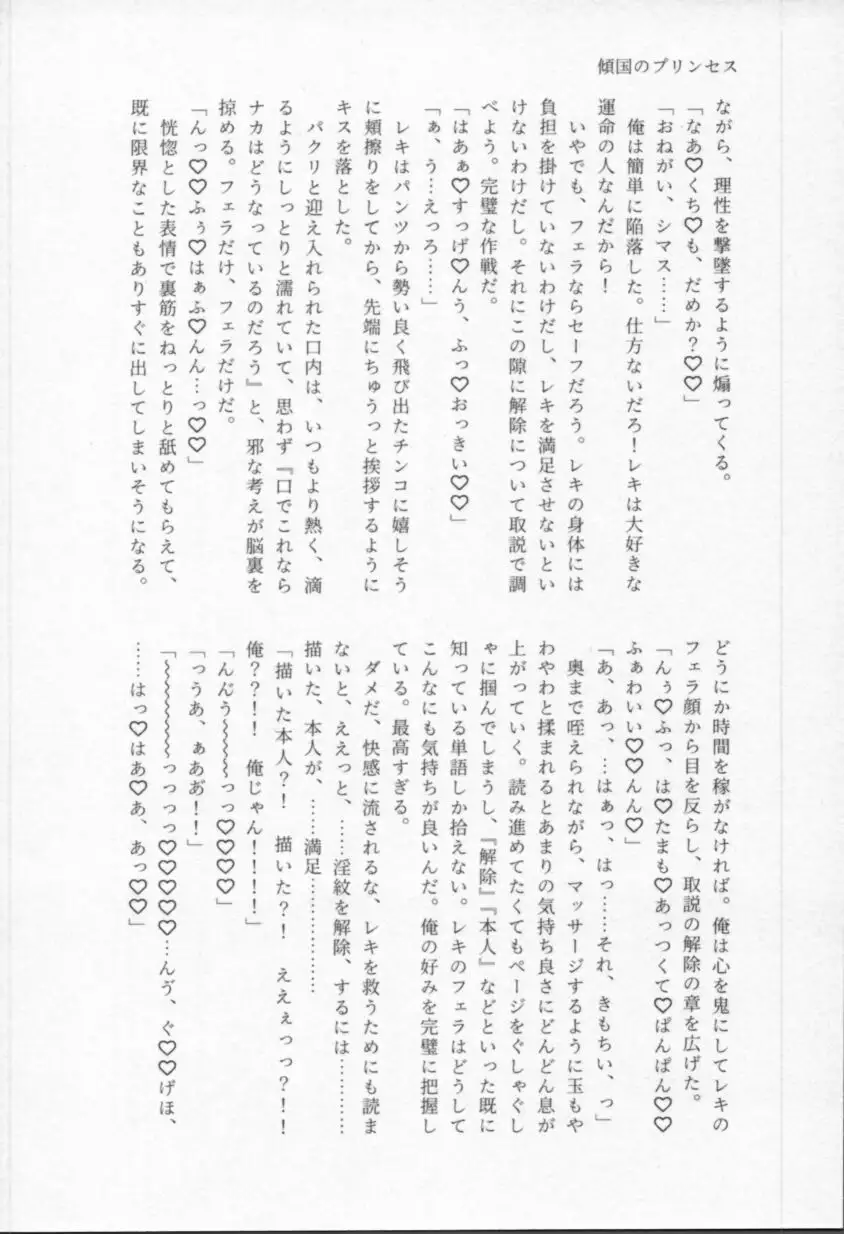 傾国のプリンセス
ながら、理性を撃墜するように煽ってくる。
「なあ♡くち♡も、だめか？♡♡」
「おねがい、シマス……」
　俺は簡単に陥落した。仕方ないだろ！レキは大好きな
運命の人なんだから！
　いやでも、フェラならセーフだろう。レキの身体には
負担を掛けていないわけだし、レキを満足させないとい
けないわけだし。それにこの隙に解除について取説で調
べよう。完璧な作戦だ。
「はあぁ♡すっげ♡んう、ふっ♡おっきい♡♡」
「ぁ、う…えっろ……」
　レキはパンツから勢い良く飛び出たチンコに嬉しそう
に頬擦りをしてから、先端にちゅうっと挨拶するように
キスを落とした。
　パクリと迎え入れられた口内は、いつもより熱く、滴
るようにしっとりと濡れていて、思わず『口でこれなら
ナカはどうなっているのだろう』と、邪な考えが脳裏を
掠める。フェラだけ、フェラだけだ。
「んっ♡♡ふぅ♡はぁふ♡んん…っ♡♡」
　恍惚とした表情で裏筋をねっとりと舐めてもらえて、
既に限界なこともありすぐに出してしまいそうになる。
どうにか時間を稼がなければ。俺は心を鬼にしてレキの
フェラ顔から目を反らし、取説の解除の章を広げた。
「んぅ♡ふっ、は♡たまも♡あっつくて♡ぱんぱん♡♡
ふぁわいい♡♡んん♡」
「あ、あっ、…はぁっ、はっ……それ、きもちい、っ」
　奥まで咥えられながら、マッサージするように玉もや
わやわと揉まれるとあまりの気持ち良さにどんどん息が
上がっていく。読み進めてたくてもページをぐしゃぐし
ゃに掴んでしまうし、『解除』『本人』などといった既に
知っている単語しか拾えない。レキのフェラはどうして
こんなにも気持ちが良いんだ。俺の好みを完璧に把握し
ている。最高すぎる。
　ダメだ、快感に流されるな、レキを救うためにも読ま
ないと、ええっと、……淫紋を解除、するには…………
描いた、本人が、……満足…………………
「描いた本人？！　描いた？！　ええぇっっ？！！
俺？？！！　俺じゃん！！！！」
「んじう〜〜〜〜っっ♡♡♡♡」
「っうあ、ぁあぢ！！」
「〜〜〜〜〜〜っっっっ♡♡♡♡♡…んづ、ぐ♡♡げほ、
……はっ♡はあ♡あ、あっ♡♡」